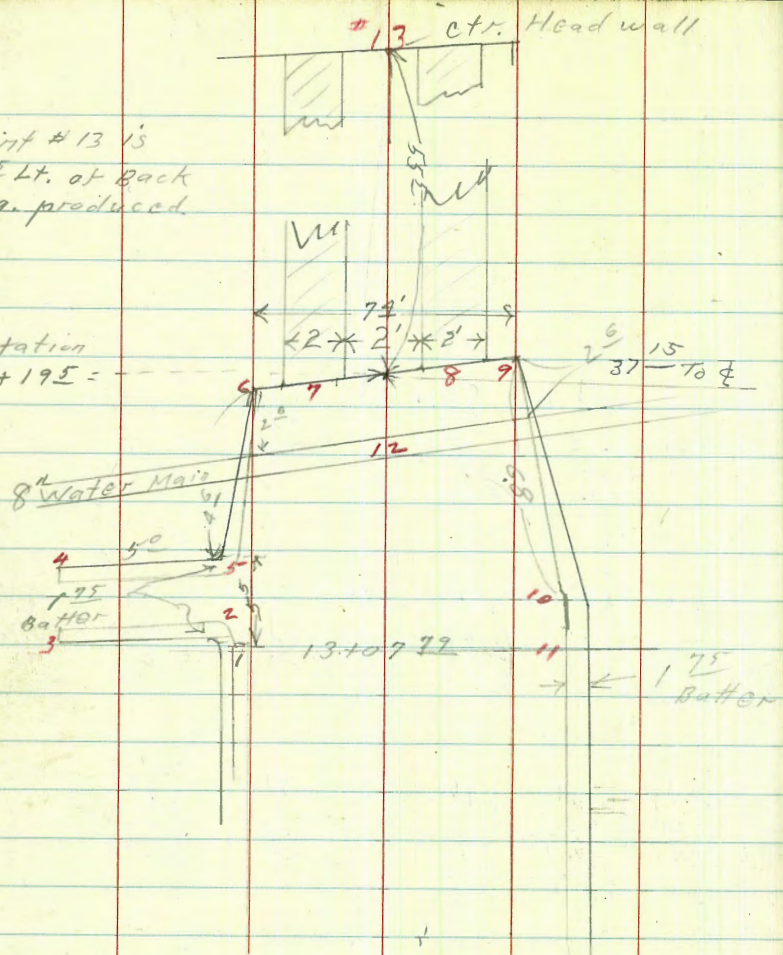 #13 ctr. Head wall
int #13 is
Lt. of Back
produced
tation
+195 =
2 2' 2'
6 7 8 9
2⁶
37 15 To ℄
2⁶
12
8" Water Main
6.8
4 5⁰ 5
1 75
Batter
2
3
1
13+07 79
10
11
1 75
Batter